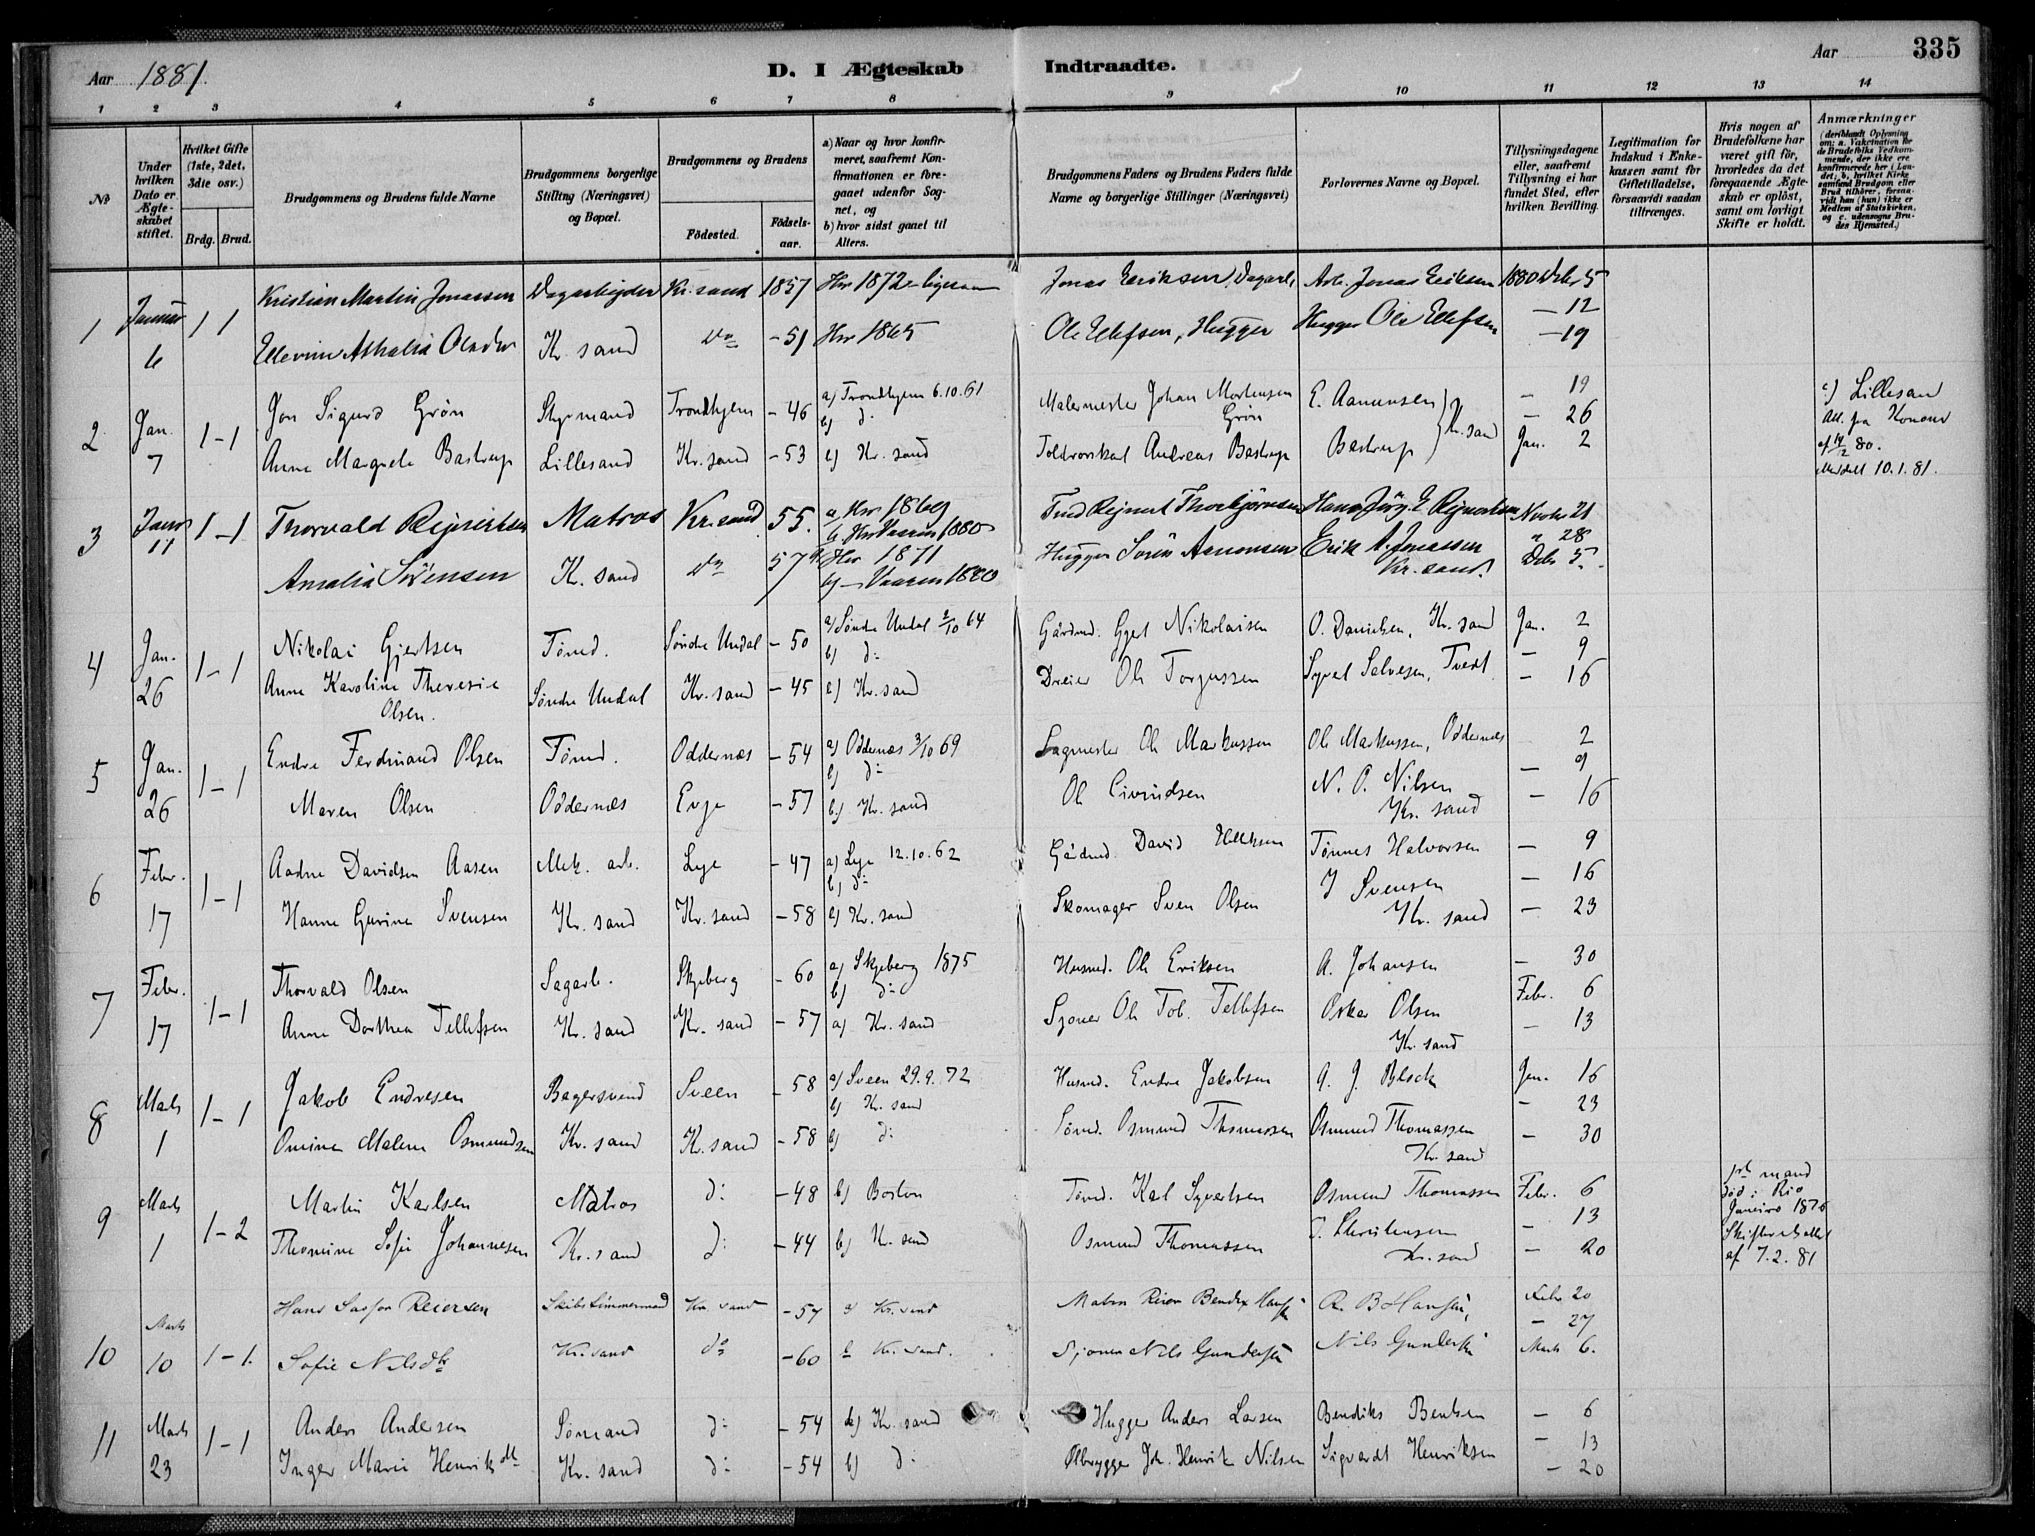 Aar 1881.
D. I Ægteskab Indtraadte.
Aar 335
1 2 3 4 5 6 7 8 9 10 11 12 13 14
No
Under hvilken Dato er Ægteskabet stiftet.
Hvilket Gifte (1ste, 2det, 3die osv.)
Brdg. Brud.
Brudgommens og Brudens fulde Navne
Brudgommens borgerlige Stilling (Næringsvei) og Bopæl.
Brudgommens og Brudens
Födested.
Födselsaar.
a) Naar og hvor konfirmeret, saafremt Konfirmationen er foregaaet udenfor Sognet, og
b) hvor sidst gaaet til Alters.
Brudgommens Faders og Brudens Faders fulde Navne og borgerlige Stillinger (Næringsvei)
Forlovernes Navne og Bopæl.
Tillysningsdagene eller, saafremt Tillysning ei har fundet Sted, efter hvilken Bevilling.
Legitimation for Indskud i Enkekassen samt for Giftetilladelse, forsaavidt saadan tiltrænges.
Hvis nogen af Brudefolkene har været gift för, hvorledes da det foregaaende Ægteskab er oplöst, samt om lovligt Skifte er holdt.
Anmærkninger
(deriblandt Oplysning om: a. Vakcination for de Brudefolks Vedkommende, der ikke ere konfirmerede her i Landet; b. hvilket Kirkesamfund Brudgom eller Brud tilhörer, forsaavidt han (hun) ikke er Medlem af Statskirken, og c. udensogns Brudes Hjemsted.)
1 Januar 6 1 1
Kristian Martin Jonassen Dagarbeider Kr.sand 1857 Her 1872 Jonas Eriksen, Dagarb. Arb. Jonas Eriksen 1880 Debr 5
— 12
Ellevine Athalia Olsdtr Kr. sand do — 51 Her 1865 Ole Ellefsen, Hugger Hugger Ole Ellefsen — 19
2 Jan. 7 1-1
Jon Sigurd Grön Styrmand Trondhjem — 46 a) Trondhjem 6.10.61 b) d: Malermester Johan Mortensen Grön E. Aanensen — 19
— 26
Anne Margrete Bastrup Lillesand Kr. sand — 53 b) Kr. sand Andreas Bastrup Bastrup Kr. sand Jan. 2
c) Lillesan
Att. fra
af 17/12 80.
Meddelt 10.1.81.
3 Janr 11 1-1
Thorvald Rejnertsen Matros Kr. sand 55. a. Her 1869 b. Her Vaaren 1880 Rejnert Thorbjörnsen Hans Jörg. E Rejnertsen Novbr 21
" 28
Amalia Sörensen Kr. sand do 57 a. Her 1871 b) — Vaaren 1880 Hugger Sörin Aanonsen Erik A. Jonassen Kr. sand. Debr 5.
4 Jan. 26 1-1
Nikolai Gjertsen Tömd. Söndre Undal — 50 a) Söndre Undal 2/10 64 b) d: Gårdmd. Gjert Nikolaisen O. Danielsen, Kr. sand Jan. 2
— 9
Anne Karoline Theresie Olsen. Söndre Undal Kr. sand — 45 b) Kr. sand Dreier Ole Torjussen Syvert Salvesen, Tvedt — 16
5 Jan. 26 1-1
Endre Ferdinand Olsen Tömd. Oddernæs — 54 a) Oddernæs 3/10 69 b) d: Sagmester Ole Markussen Ole Markussen, Oddernæs 2
— 9
Maren Olsen Oddernæs Evje — 57 b) Kr. sand Ole Eivindsen N. O. Nilsen Kr. sand — 16
6 Febr. 17 1-1
Aadne Davidsen Aasen Mek. arb. Lye — 47 a) Lye 12.10.62 b) d: Gårdmd. David Tönnes Halvorsen — 9
— 16
Hanne Gurine Svensen Kr. sand Kr. sand — 58 b) Kr. sand Skomager Sven Olsen J Svensen Kr. sand — 23
7 Febr. 17 1-1
Thorvald Olsen Sagarb. Skjeberg — 60 a) Skjeberg 1875 b) d: Husmd. Ole Eriksen A. Johansen — 30
Febr. 6
Anne Dorthea Tellefsen Kr. sand Kr. sand — 57 a) Kr. sand Sjouer Ole Tob. Tellefsen Oskar Olsen Kr. sand — 13
8 Marts 1 1-1
Jakob Endresen Bagersvend Sveen — 58 a) Sveen 29.9.72 b) Kr. sand Husmd. Endre Jakobsen A. J. Block Jan. 16
— 23
Omine Malene Osmundsen Kr. sand K. sand — 58 b) d: Sömd. Osmund Thomassen Osmund Thomassen Kr. sand — 30
9 Marts 1 1-2
Martin Karlsen Matros d: — 48 b) Boston Tömd. Karl Syvertsen Osmund Thomassen Febr. 6
— 13
Thomine Sofie Johannesen Kr. sand d: — 44 b) Kr. sand Osmund Thomassen Christensen Kr. sand — 20
1ste mand död i Rio Janeiro 1876
af 7.2.81
10 Marts 10 1-1.
Hans Reiersen Skibstömmermand Kr. sand — 57 b) Kr. sand Reier Bendix Hansen R. B Hansen, Febr 20
— 27
Sofie Nilsdtr Kr. sand do — 60 b Kr. sand. Sjouer Nils Gundersen Nils Gundersen Marts 6.
11 Marts 23 1-1
Anders Andersen Sömand d: — 54 b) Kr. sand Hugger Anders Larsen Bendiks Bentsen — 6
— 13
Inger Marie Henriksdtr Kr. sand d: — 54 b) d: Ølbrygger Joh. Henrik Nilsen Sigvardt Henriksen — 20